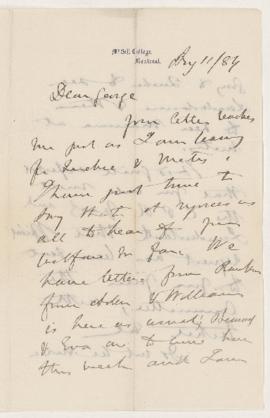 McGill College,
Montreal.
Aug 11/84
Dear George
Your letter reaches
me just as I am leaving
for Quebec & Metis.
I have just time to
say that it rejoices us
all to hear of your
welfare so far. We
have letters from
from &  William
is here as usual;
& Eva are to leave here
this week and I am